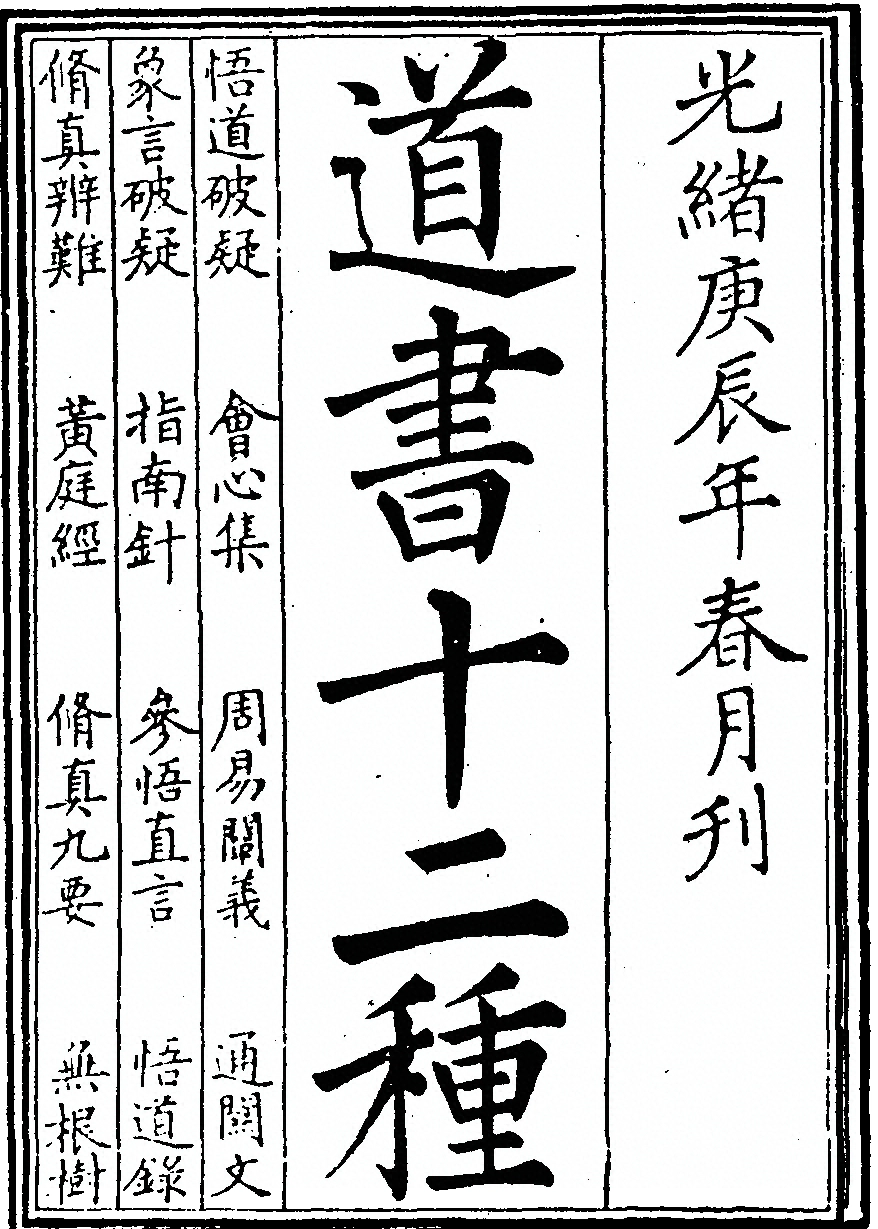 光緒庚辰年春月刊
道書十二種
悟道破疑 會心集 周易闡義 通關文
象言破疑 指南針 參悟直言 悟道錄
脩真辨難 黃庭經 脩真九要 無根樹